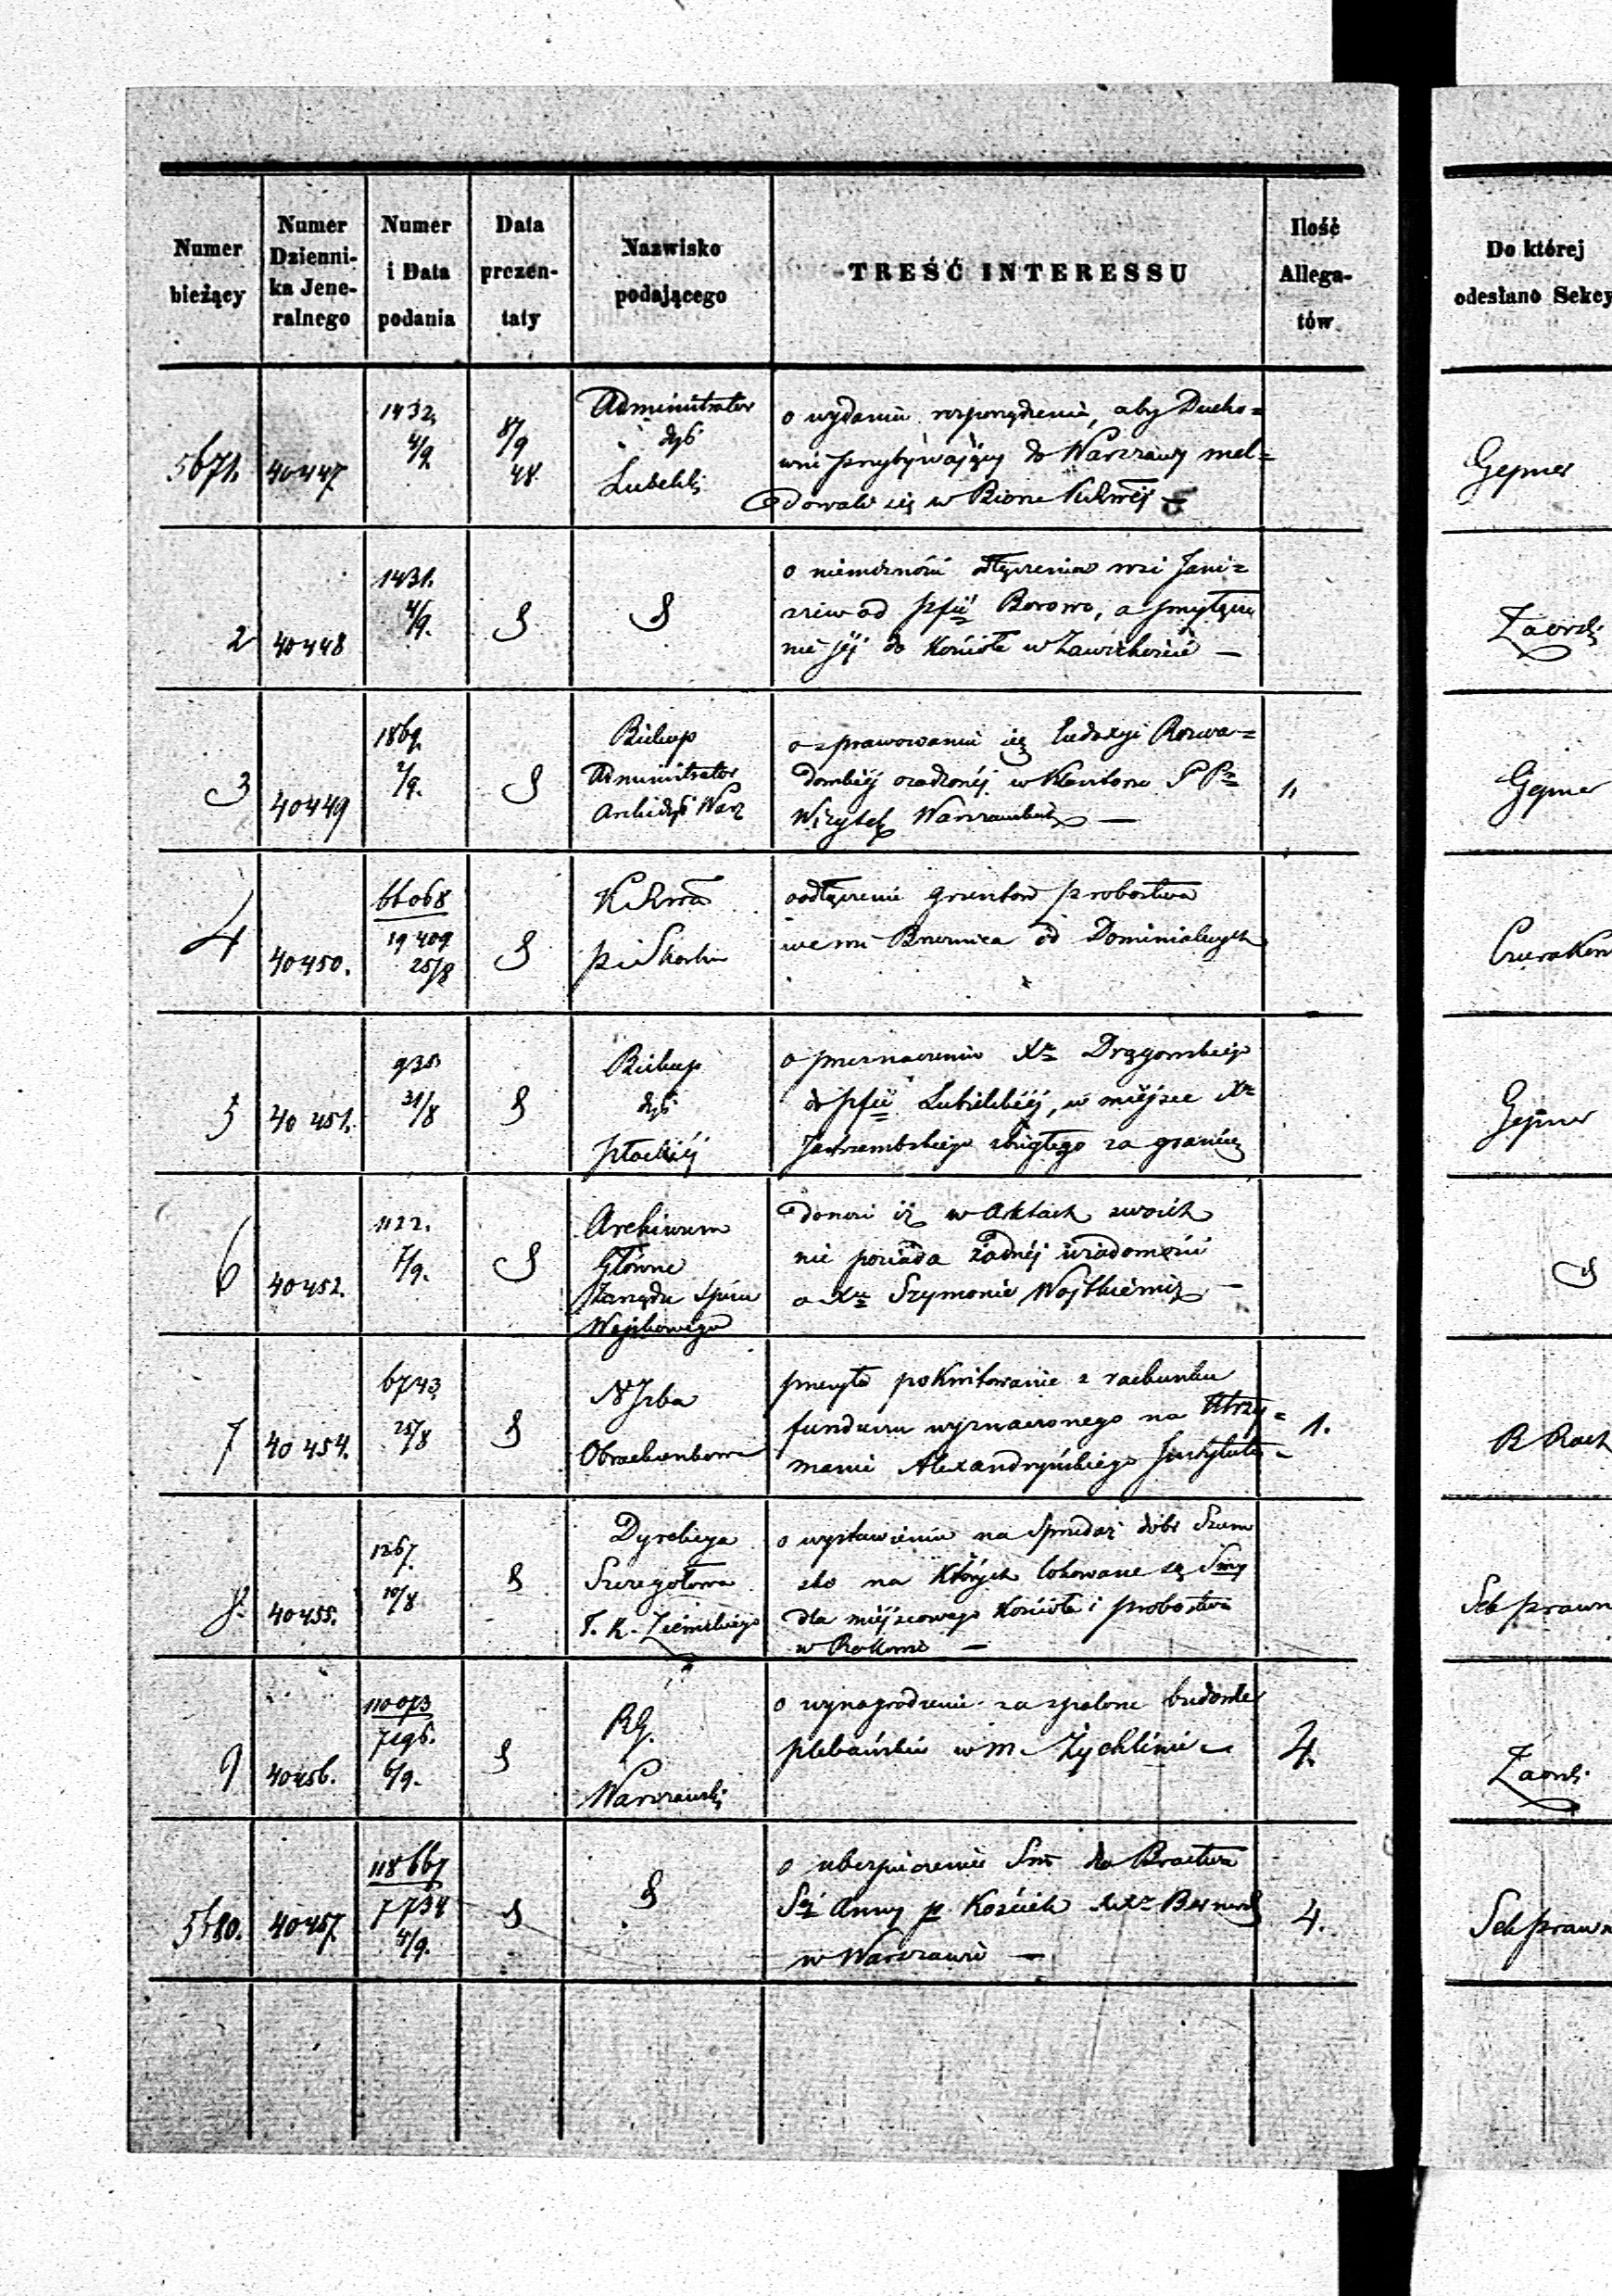 Numer
bieżący
Numer
Dzienni-
ka Jene-
ralnego
Numer
i Data
podania
Data
prezen-
taty
Nazwisko
podającego
TREŚĆ INTERESSU
Ilość
Allega-
tów
Do której
odesłano Sekcy
5671.
40447
1432,
4/9
8/9
48.
Administrator
dyś
Lubelski
o wydaniu rozporządzenia, aby Ducho=
wni przybywający do Warszawy mel=
dowali się w Biorze
Gejmer
2
40448
1431.
4/9.
o niemożności odłączenia wsi Jani=
szew od pfii Borowo, a przyłącze
nie jej do Kościoła w Zawichoście —
3
40449
1869.
2/9.
Biskup
Administrator
Archidyś Warz
o sprawowaniu się Ludwgi Rozwa=
dowskiej osadzonej w Klasztorze P P=
Wizytek Warszawskich —
1,
Gejmer
4
40450.
66068
19409
25/8
pi Skarbu
oodłączenie gruntów probostwa
we wsi od Dominialnych
5
40451.
930.
31/8
Biskup
dyś
płockiej
o przeznaczenie Xa Drągowskiego
do pfii Lubielskiej, w miejsce Xa
Jastrzembskiego zbiegłego za granicę
Gejmer
6
40452.
1122.
7/9.
Archiwum
Główne
Zarządu Spisu
Wojskowego
donosi iż w Aktach swoich
nie posiada żadnej wiadomości
o Xu Szymonie Wojtkiewicz —
7
40454.
6743
25/8
N Izba
Obrachunkowa
przesyła pokwitowanie z rachunku
funduszu wyznaczonego na Utrzy=
manie Alexandryńskiego Instytutu
1.
R Rach
8.
40455.
1267.
10/8
Dyrekcya
Szczegółowa
T. K. Ziemskiego
o wystawieniu na Sprzedaż dóbr Szum
sko na których lokowane są Sumy
dla miejscowego Kościoła i probostwa
w Rakowie —
Sek prawn
9
40456.
110073
7296.
6/9.
RG.
Warszawski
o wynagrodzenie za spalone budowle
plebańskie w m. Żychlinie
4.
5680.
40457.
118667
7734
4/9.
o ubezpieczenie Sm dla Bractwa
Sej Anny p Kościele XX Bernard
w Warszawie —
4.
Sek prawn